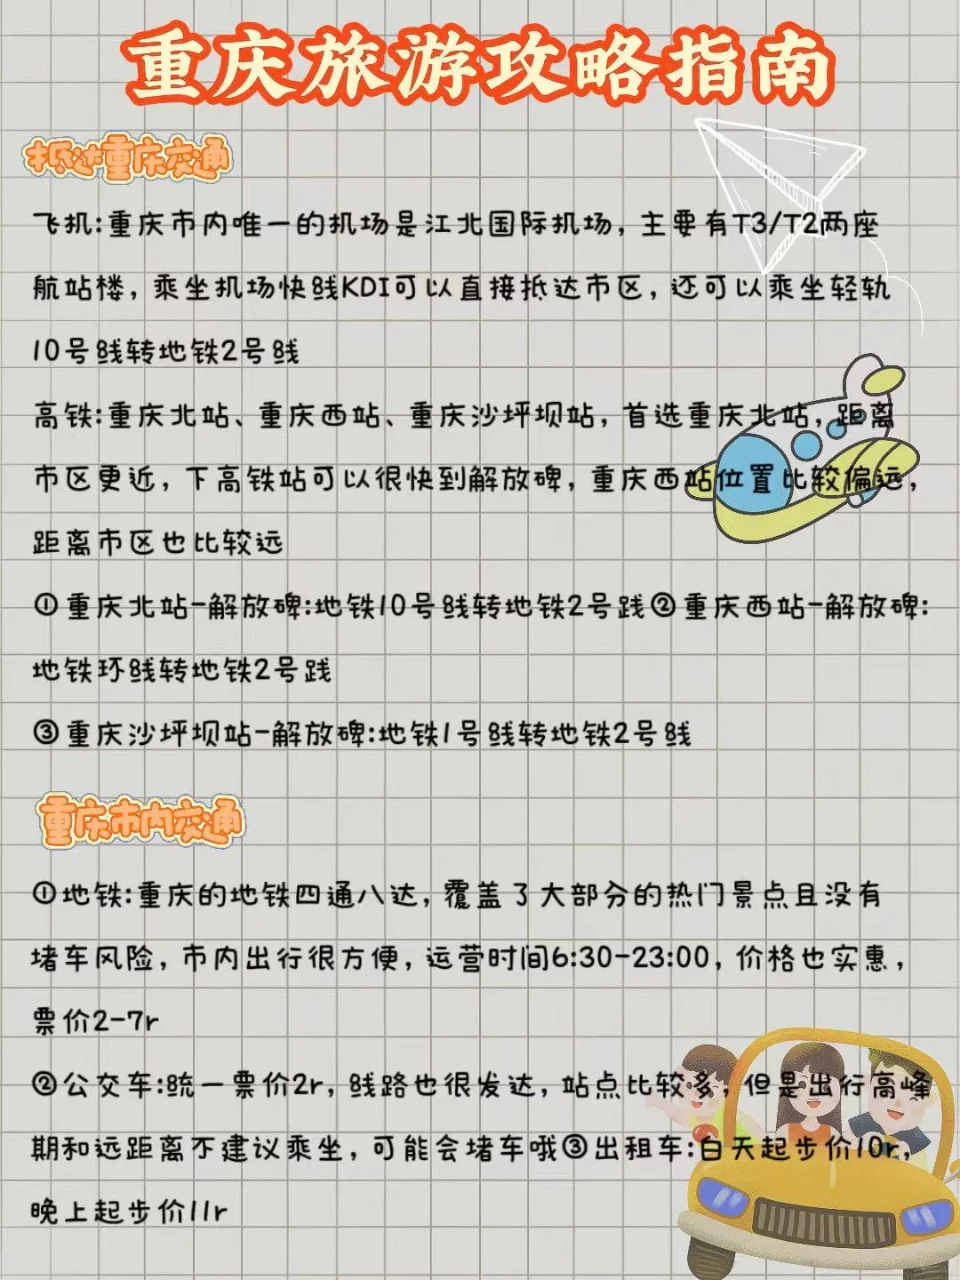 重庆旅游攻略指南
抵达重庆交通
飞机:重庆市内唯一的机场是江北国际机场，主要有T3/T2两座
航站楼，乘坐机场快线KD1可以直接抵达市区，还可以乘坐轻轨
10号线转地铁2号线
高铁:重庆北站、重庆西站、重庆沙坪坝站，首选重庆北站，距离
市区更近，下高铁站可以很快到解放碑，重庆西站位置比较偏远，
距离市区也比较远
①重庆北站-解放碑:地铁10号线转地铁2号践②重庆西站-解放碑:
地铁环线转地铁2号践
③重庆沙坪坝站-解放碑:地铁1号线转地铁2号线
重庆市内交通
①地铁:重庆的地铁四通八达，覆盖了大部分的热门景点且没有
堵车风险，市内出行很方便，运营时间6:30-23:00，价格也实惠，
票价2-7r
②公交车:统一票价2r，线路也很发达，站点比较多，但是出行高峰
期和远距离不建议乘坐，可能会堵车哦③出租车:白天起步价10r，
晚上起步价11r